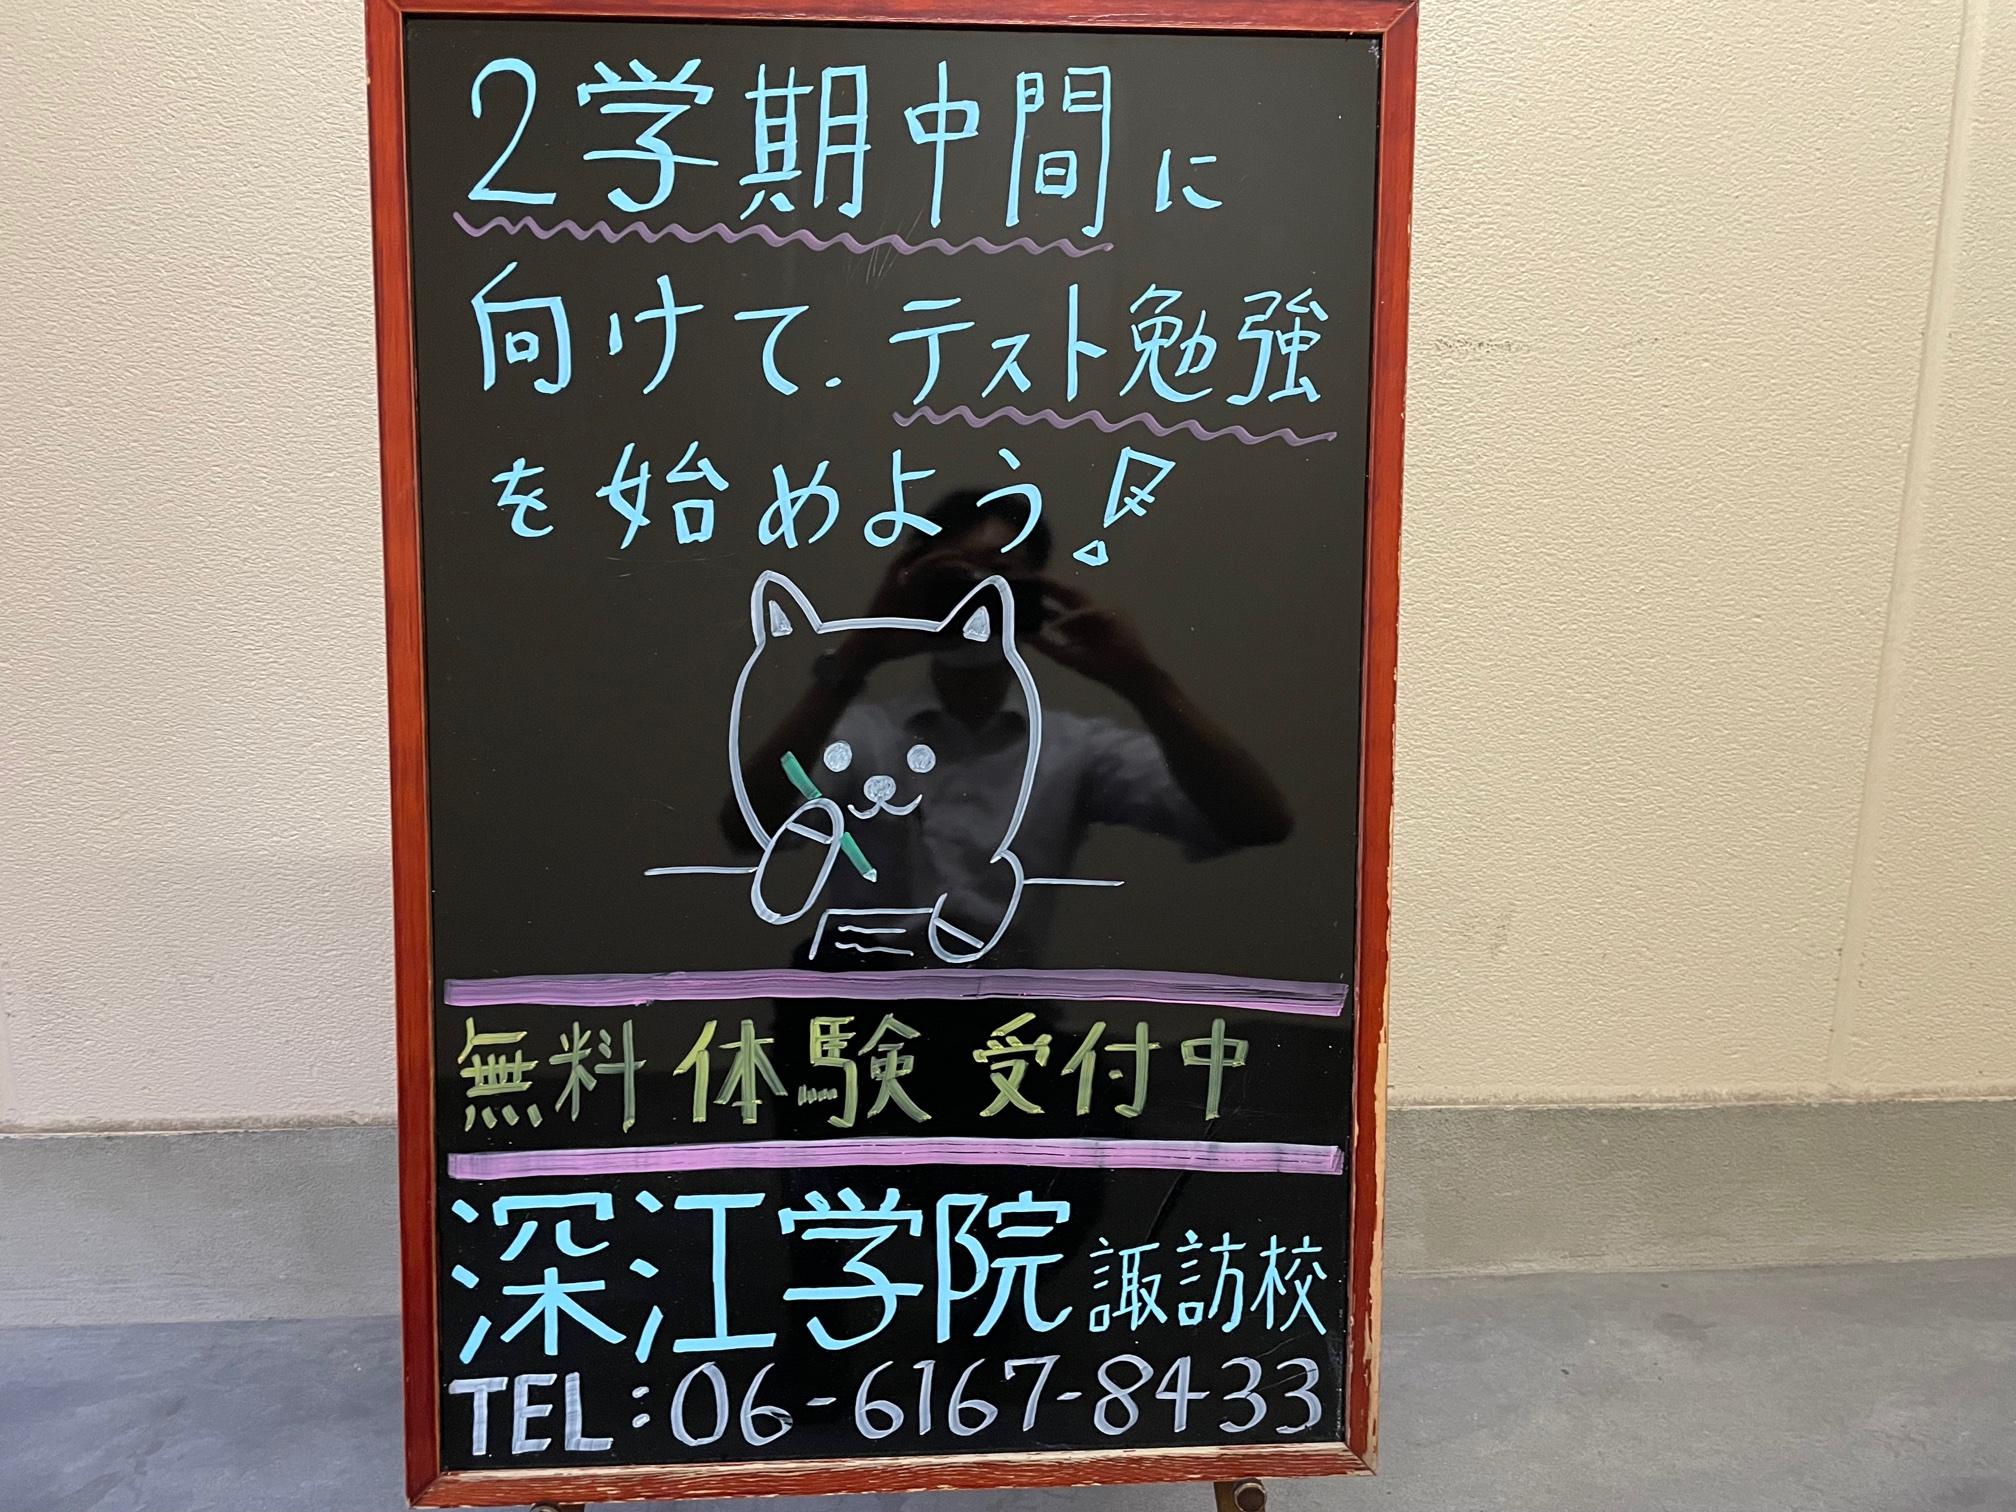 2学期中間に
向けて.テスト勉強
を始めよう!
無料体験受付中
深江学院 諏訪校
TEL:06-6167-8433